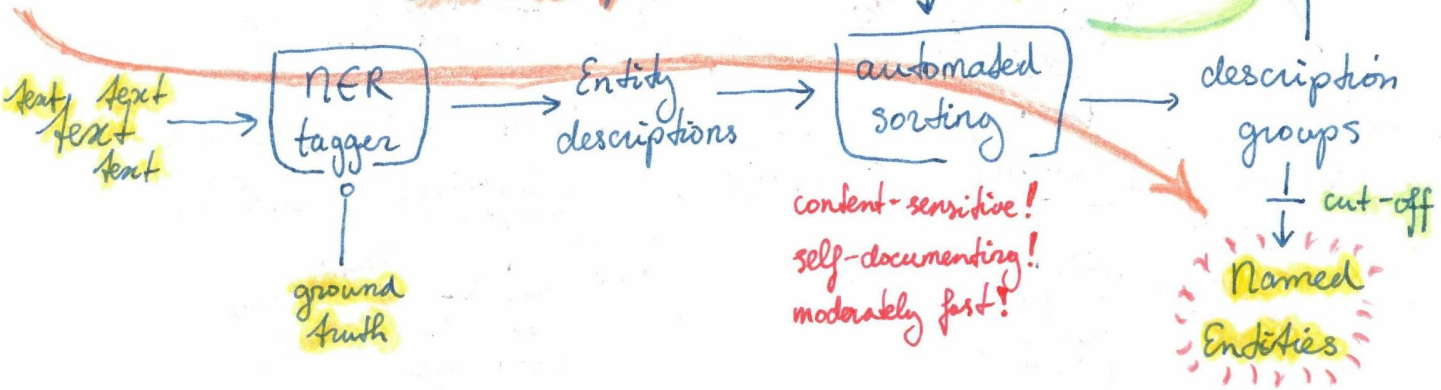 text, text
text
text
NER
tagger
ground
truth
Entity
descriptions
automated
sorting
content-sensitive!
self-documenting!
moderately fast!
description
groups
cut-off
Named
Entities